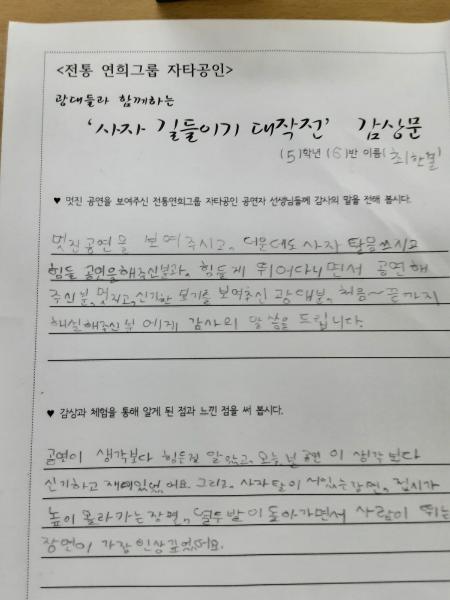 <전통 연희그룹 자타공인>
광대들과 함께하는
'사자 길들이기 대작전' 감상문
(5)학년 (6)반 이름(최한결)
♥ 멋진 공연을 보여주신 전통연희그룹 자타공인 공연자 선생님들께 감사의 말을 전해 봅시다.
멋진공연을 보여주시고, 더운데도 사자 탈을쓰시고
힘든 공연을해주신분과, 힘들게 뛰어다니면서 공연해
주신분, 멋지고, 신기한 묘기를 보여주신 광대분, 처음~끝까지
해설해주신분 에게 감사의 말씀을 드립니다.
♥ 감상과 체험을 통해 알게 된 점과 느낀 점을 써 봅시다.
공연이 생각보다 힘든걸 알았고, 오늘 본 공연이 생각보다
신기하고 재미있었어요. 그리고 사자탈이 서있는장면, 접시가
높이 올라가는장면, 열두발이 돌아가면서 사람이 뛰는
장면이 가장 인상깊었어요.